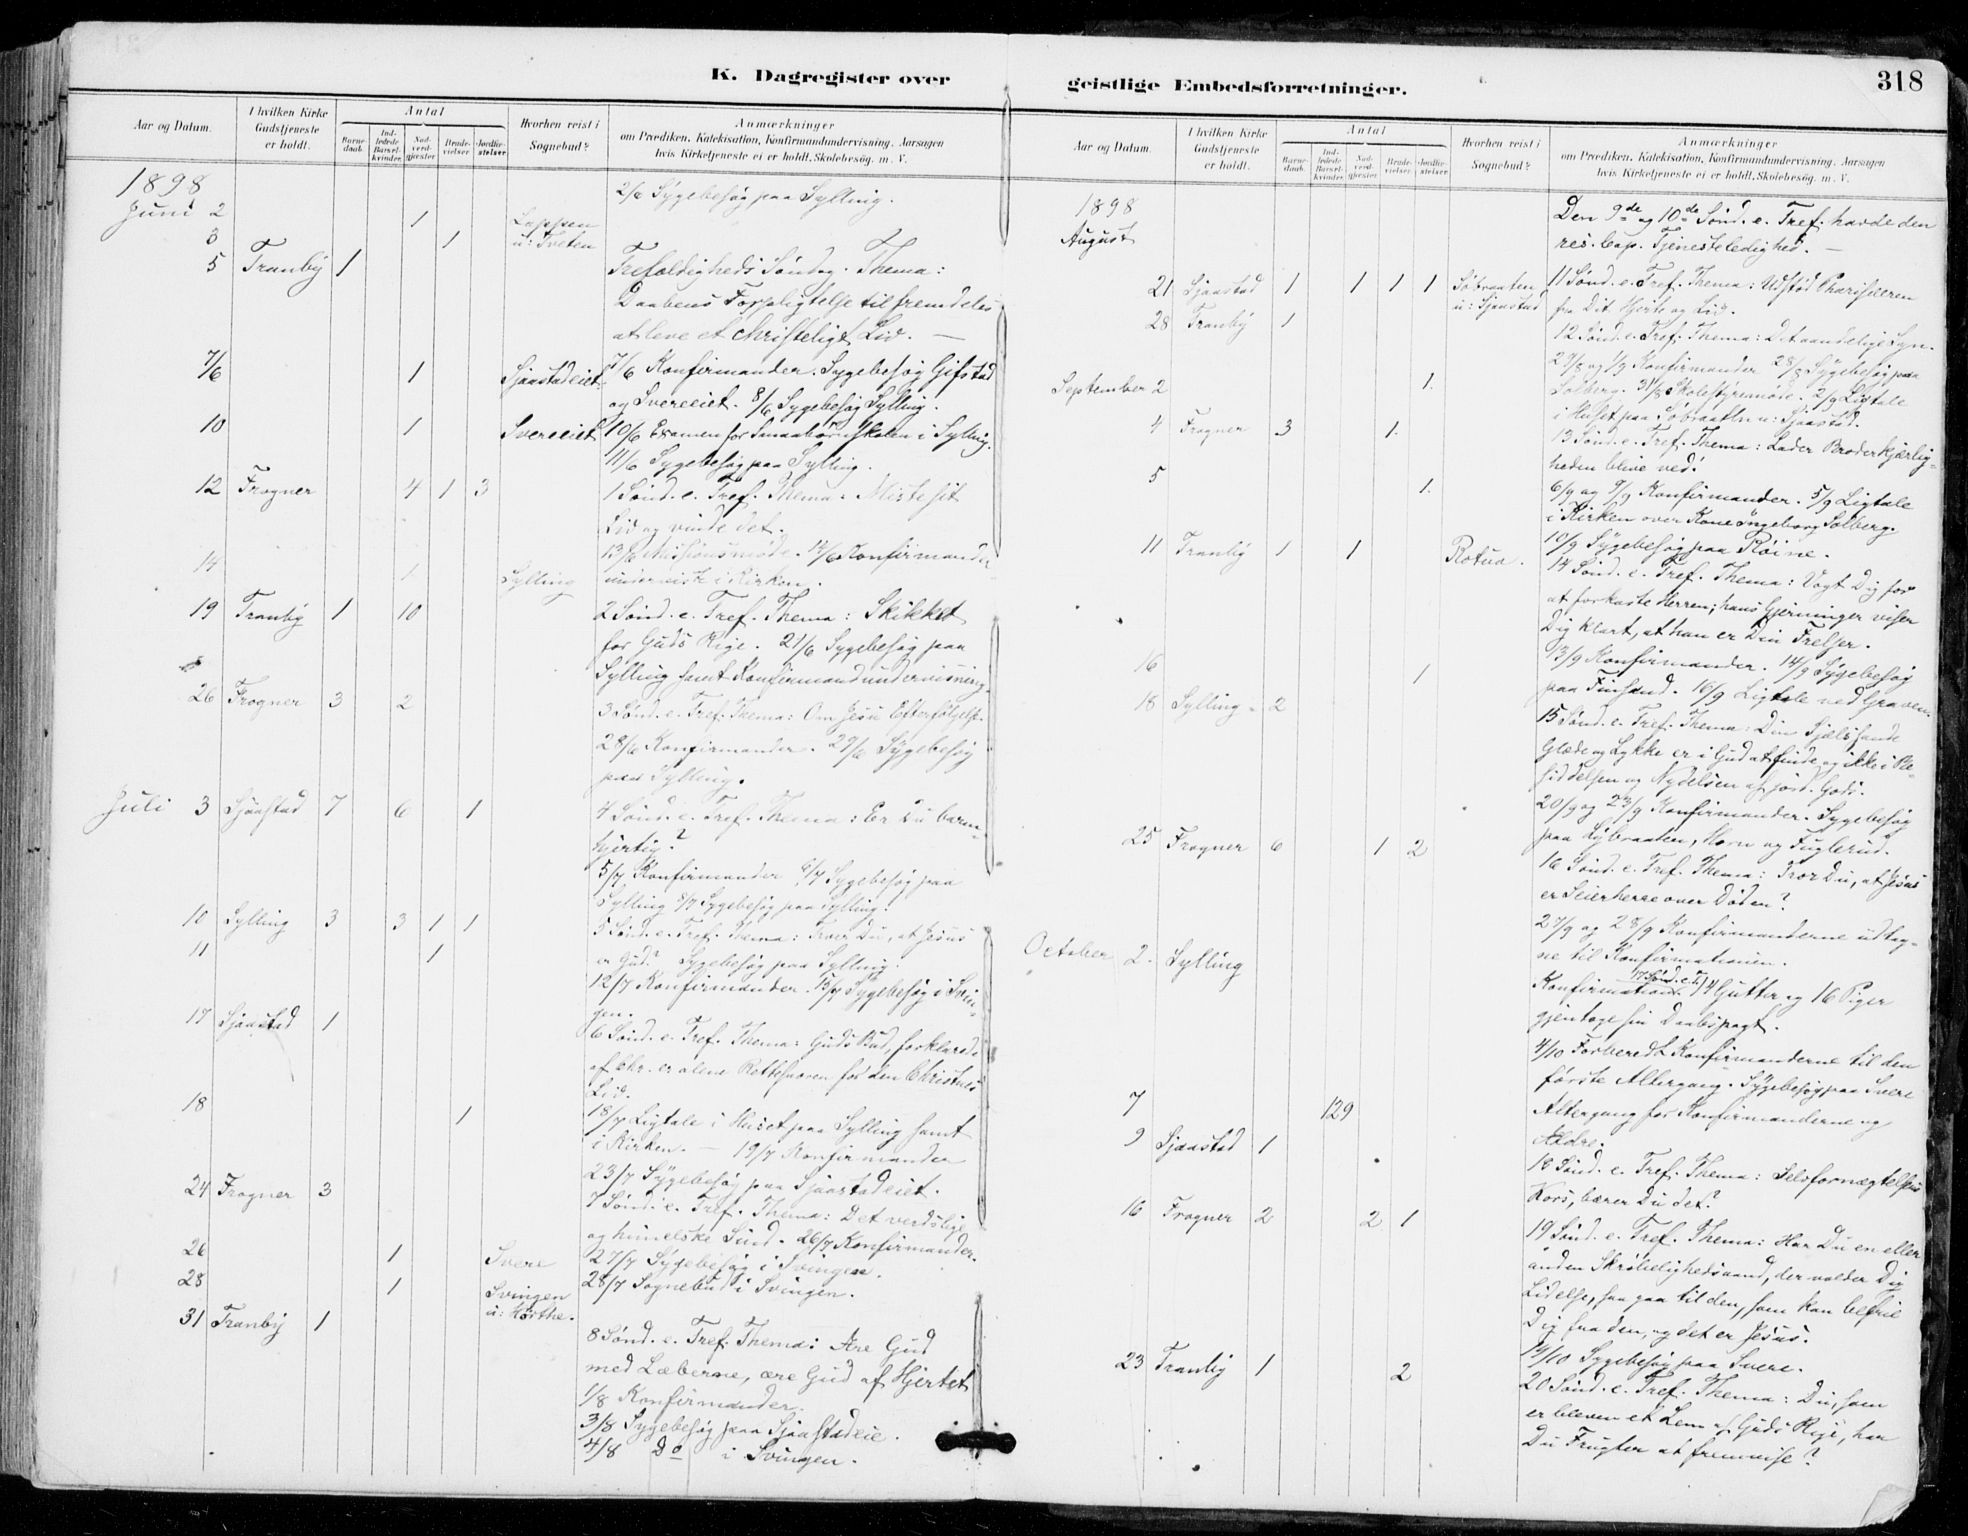 K. Dagregister over geistlige Embedsforretninger.
318
Aar og Datum.
I hvilken Kirke Gudstjeneste er holdt.
Antal
Barnedaab.
Indledede Barselkvinder.
Nadverdgjester
Brudevielser
Jordfæstelser
Hvorhen reist i Sognebud?
Anmærkninger
om Prædiken, Katekisation, Konfirmandundervisning, Aarsagen
hvis Kirketjeneste ei er holdt, Skolebesøg m. V.
1898
2/6 Sygebesøg paa Sylling.
Juni 2 1 Loppen
3 1 u: Tveten
5 Tranby 1 Trefoldigheds Søndag. Thema:
Daabens Forpligtelse til fremdeles
at leve et christeligt Liv. —
7/6 1 Sjaastadeiet 7/6 Konfirmander. Sygebesøg Gifstad
og Svereeiet. 8/6 Sygebesøg Sylling.
10 1 Svereeiet 10/6 Examen for Smaabørnskolen i Sylling.
11/6 Sygebesøg paa Sylling.
12 Frogner 4 1 3 1 Sønd. e. Tref. Thema: Miste sit
Liv og vinde det.
13/6 Missionsmøde. 14/6 Konfirmand
14 1 Sylling underviste i Kirken.
19 Tranby 1 10 2 Sønd. e. Tref. Thema: Skikket
for Guds Rige. 21/6 Sygebesøg paa
Sylling samt Konfirmandundervisning.
26 Frogner 3 2 3 Sønd. e. Tref. Thema: Om Jesu Efterfølgelse.
28/6 Konfirmander. 29/6 Sygebesøg
paa Sylling.
Juli 3 Sjaastad 7 6 1 4 Sønd. e. Tref. Thema: Er Du barm-
hjertig?
5/7 Konfirmander 6/7 Sygebesøg paa
Sylling 8/7 Sygebesøg paa Sylling.
10 Sylling 3 3 1 1 5 Sønd. e. Tref. Thema: Troer Du, at Jesus
11 1 er Gud? Sygebesøg paa Sylling.
12/7 Konfirmander. 13/7 Sygebesøg i Svin-
gen.
17 Sjaastad 1 6 Sønd. e. Tref. Thema: Guds Bud, forklarede
af Chr. er alene Rettesnoren for den Christnes
Liv.
18 1 18/7 Ligtale i Huset paa Sylling samt
i Kirken. — 19/7 Konfirmander
23/7 Sygebesøg paa Sjaastadeiet.
24 Frogner 3 7 Sønd. e. Tref. Thema: Det verdslige
og himmelske Sind. 26/7 Konfirmander.
26 1 Svere 27/7 Sygebesøg i Svingen.
28 1 Svingen 28/7 Sognebud i Svingen.
u: Hørthe.
31 Tranby 1 8 Sønd. e. Tref. Thema: Ære Gud
med Læberne, ære Gud af Hjertet
1/8 Konfirmander.
3/8 Sygebesøg paa Sjaastadeie.
4/8 Do i Svingen.
Aar og Datum.
I hvilken Kirke Gudstjeneste er holdt.
Antal
Barnedaab.
Indledede Barselkvinder.
Nadverdgjester
Brudevielser
Jordfæstelser
Hvorhen reist i Sognebud?
Anmærkninger
om Prædiken, Katekisation, Konfirmandundervisning, Aarsagen
hvis Kirketjeneste ei er holdt, Skolebesøg m. V.
1898 Den 9de og 10de Sønd. e. Tref. havde den
August res. Cap. Tjenesteledighed. —
21 Sjaastad 1 1 1 1 Søbraaten 11 Sønd. e. Tref. Thema: Udstød Pharisæeren
u: Sjaastad fra Dit Hjerte og Liv.
28 Tranby 1 12 Sønd. e. Tref. Thema: Det aandelige Syn.
27/8 og 1/9 Konfirmander 28/8 Sygebesøg paa
September 2 1. Solberg. 31/8 Skolestyremøde. 2/9 Ligtale
i Huset paa Søbraaten u: Sjaastad.
4 Frogner 3 1. 13 Sønd. e. Tref. Thema: Lader Broderkjærlig-
heden blive ved!
5 1. 6/9 og 9/9 Konfirmander. 5/9 Ligtale
i Kirken over Kone Ingeborg Solberg.
10/9 Sygebesøg paa Røine.
11 Tranby 1 1 Rotua. 14 Sønd. e. Tref. Thema: Vogt Dig for
at forkaste Herren; hans Gjerninger viser
Dig klart, at han er Din Frelser.
16 1 13/9 Konfirmander. 14/9 Sygebesøg
paa Finsand. 16/9 Ligtale ved Graven.
18 Sylling 2 15 Sønd. e. Tref. Thema: Din Sjæls sande
Glæde og Lykke er i Gud at finde og ikke i Be-
siddelsen og Nydelsen af jord. Gods.
20/9 og 23/9 Konfirmander. Sygebesøg
paa Lybraaten, Horn og Fuglerud.
25 Frogner 6 1 2 16 Sønd. e. Tref. Thema: Tror Du, at Jesus
er Seierherre over Døden?
27/9 og 28/9 Konfirmanderne udtag-
ne til Konfirmationen.
October 2. Sylling 17 Sønd. e. T.
Konfirmation. 14 Gutter og 16 Piger
gjentage sin Daabspagt.
4/10 Forberedt Konfirmanderne til den
første Altergang. Sygebesøg paa Svere
7 129 Altergang for Konfirmanderne og
Ældre.
9 Sjaastad 1 18 Sønd. e. Tref. Thema: Selvfornægtelsens
Kors, bærer Du det?
16 Frogner 2 2 1 19 Sønd. e. Tref. Thema: Har Du en eller
anden Skrøbelighedsaand, der volder Dig
Lidelse, saa gaa til den, som kan befrie
Dig fra den, og det er Jesus.
19/10 Sygebesøg paa Svere.
23 Tranby 1 2 20 Sønd. e. Tref. Thema: Du, som
er bleven et Lem af Guds Rige, har
Du Frugter at fremvise?